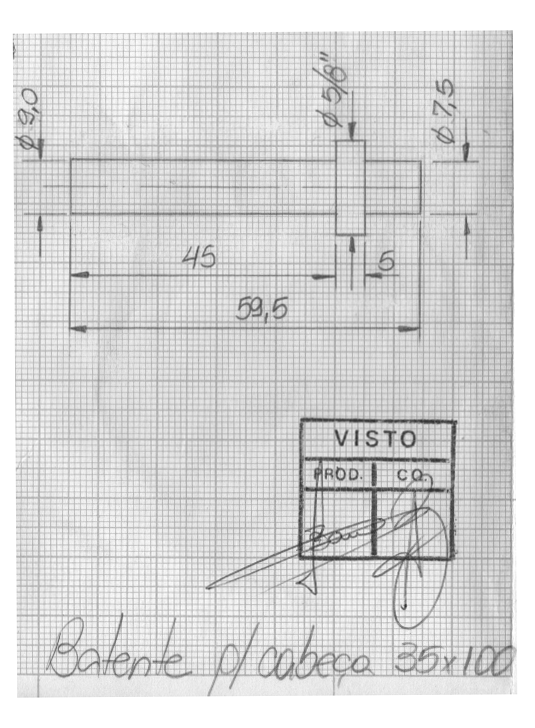 ø 9,0
ø 5/8"
ø 7,5
45
5
59,5
VISTO
PROD. CQ.
Batente p/ cabeça 35x100